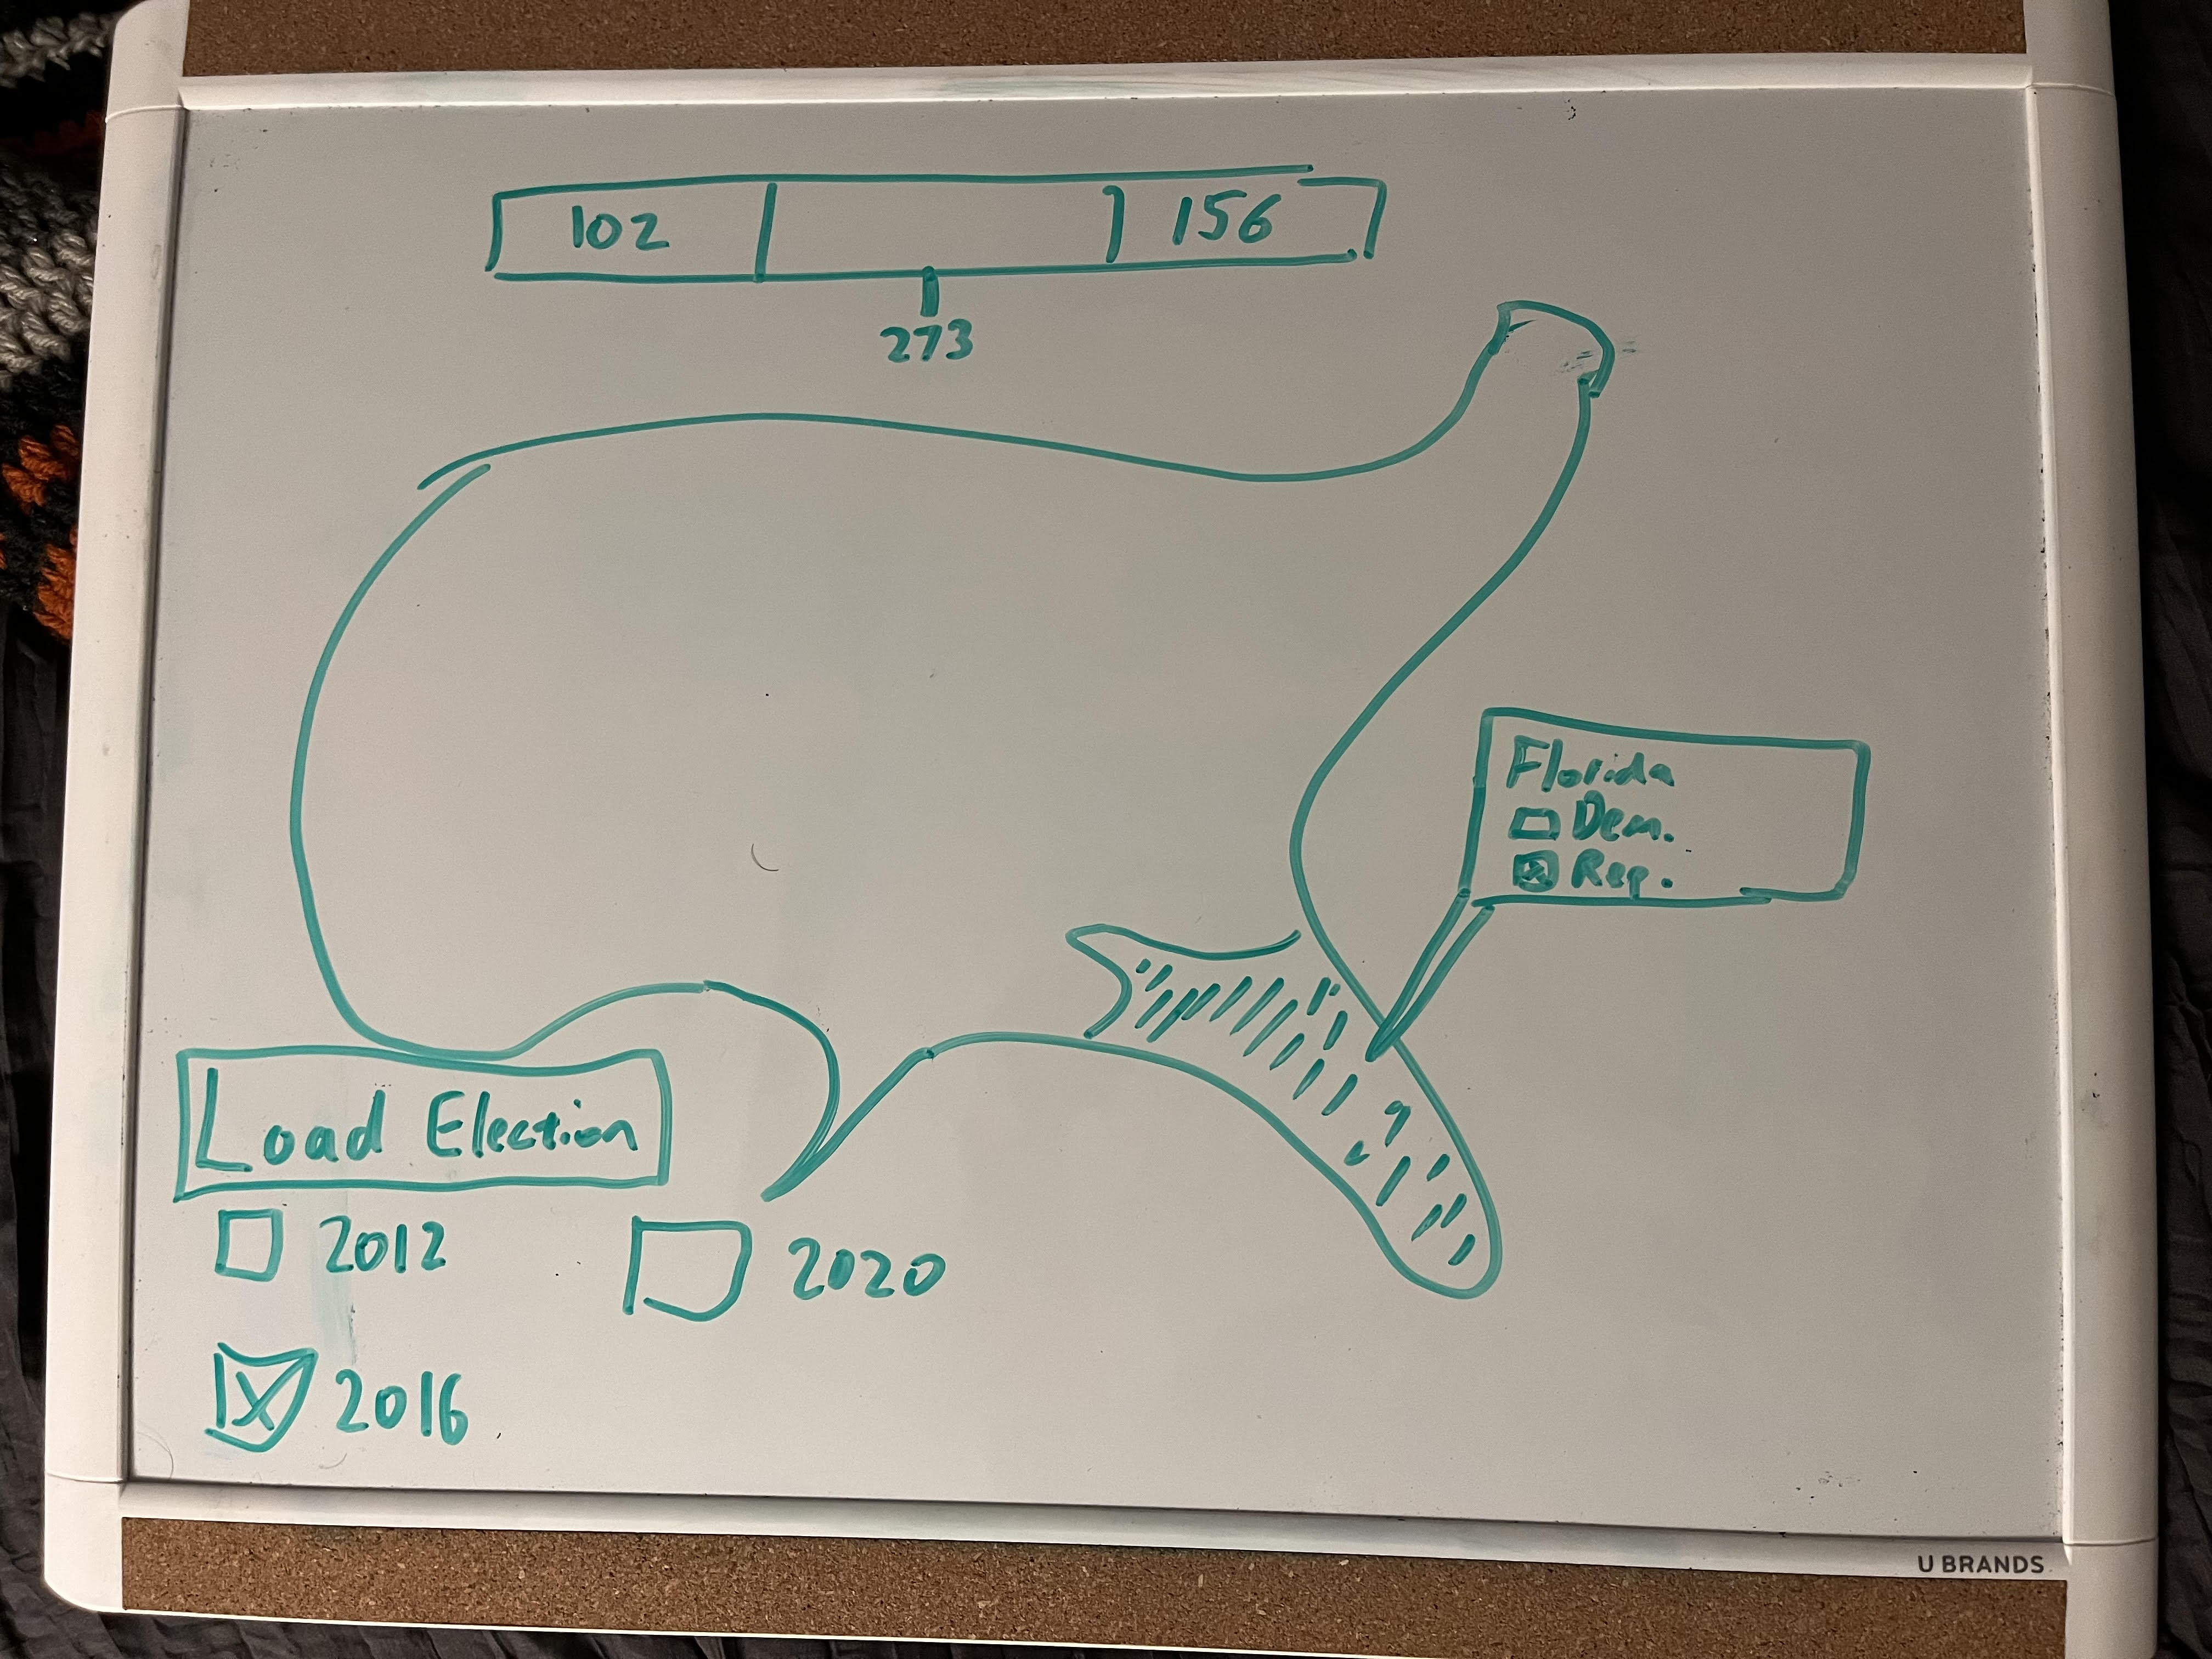 102 156
273
Florida
Dem.
Rep.
Load Election
2012 2020
2016
U BRANDS